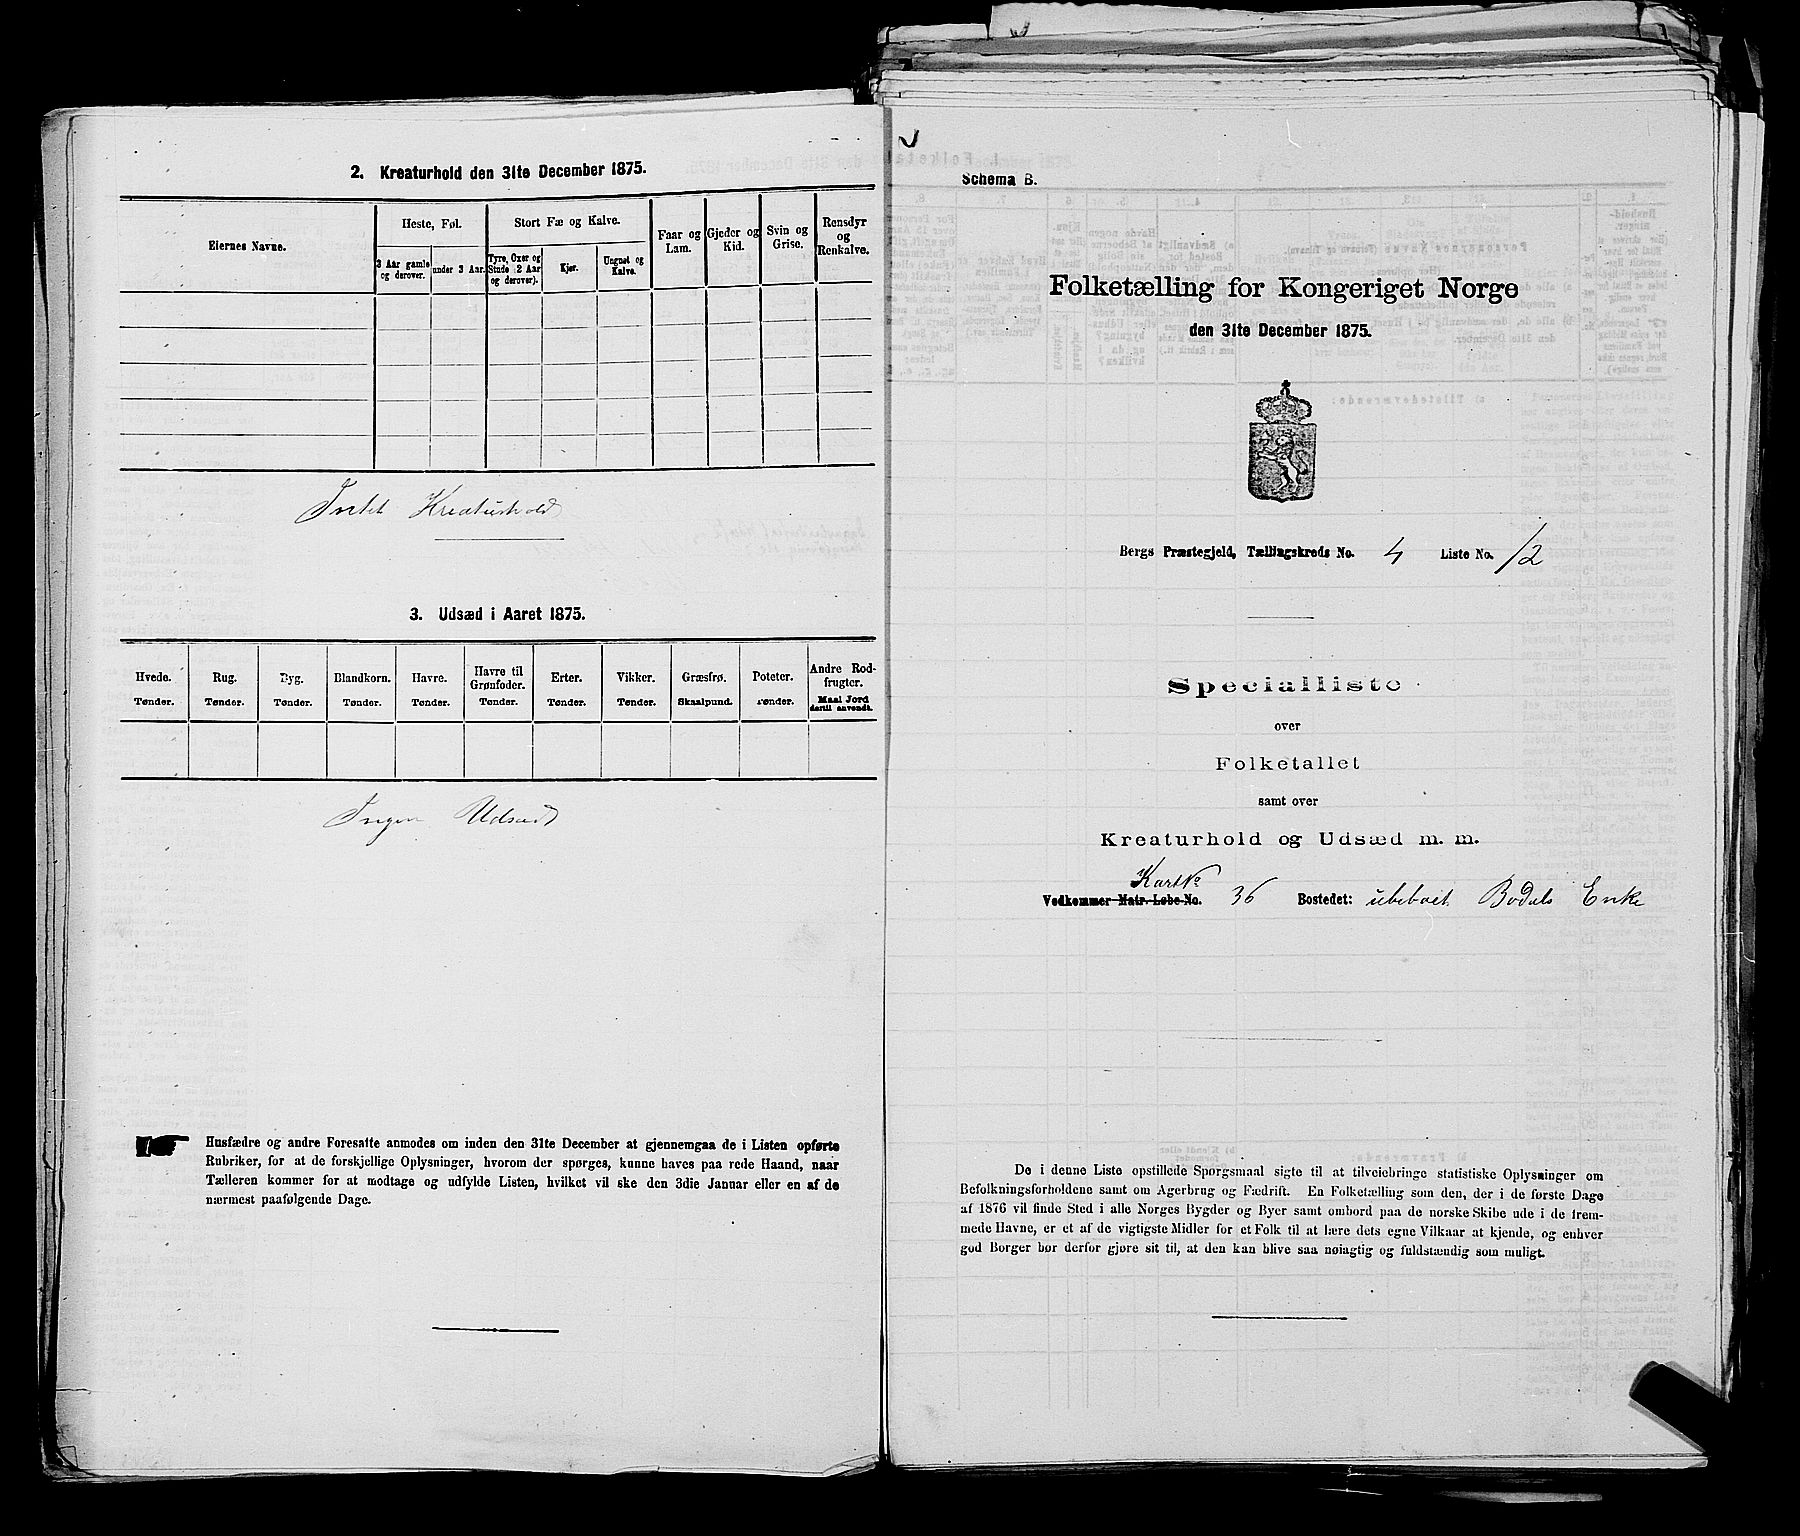 2. Kreaturhold den 31te December 1875.
Eiernes Navne.
Heste, Føl.
3 Aar gamle og derover.
under 3 Aar.
Stort Fæ og Kalve.
Tyre, Oxer og Stude 2 Aar og derover).
Kjør.
Ungnøt og Kalve.
Faar og Lam.
Gjeder og Kid.
Svin og Grise.
Rensdyr og Renkalve.
Intet Kreaturhold
3. Udsæd i Aaret 1875.
Hvede. Tønder.
Rug. Tønder.
Byg. Tønder.
Blandkorn. Tønder.
Havre. Tønder.
Havre til Grønfoder. Tønder.
Erter. Tønder.
Vikker. Tønder.
Græsfrø. Skaalpund.
Poteter. Tønder.
Andre Rodfrugter. Maal Jord dertil anvendt.
Ingen Udsæd
Husfædre og andre Foresatte anmodes om inden den 31te December at gjennemgaa de i Listen opførte
Rubriker, for at de forskjellige Oplysninger, hvorom der spørges, kunne haves paa rede Haand, naar
Tælleren kommer for at modtage og udfylde Listen, hvilket vil ske den 3die Januar eller en af de
nærmest paafølgende Dage.
Schema B.
Folketælling for Kongeriget Norge
den 31te December 1875.
Bergs Præstegjeld, Tællingskreds No. 4 Liste No. 12
Specialliste
over
Folketallet
samt over
Kreaturhold og Udsæd m. m.
Kart No
Vedkommer Matr. Løbe-No. 36 Bostedet: ubeboet Bodals Enke
De i denne Liste opstillede Spørgsmaal sigte til at tilveiebringe statistiske Oplysninger om
Befolkningsforholdene samt om Agerbrug og Fædrift. En Folketælling som den, der i de første Dage
af 1876 vil finde Sted i alle Norges Bygder og Byer samt ombord paa de norske Skibe ude i de frem-
mede Havne, er et af de vigtigste Midler for et Folk til at lære dets egne Vilkaar at kjende, og enhver
god Borger bør derfor gjøre sit til, at den kan blive saa nøiagtig og fuldstændig som muligt.